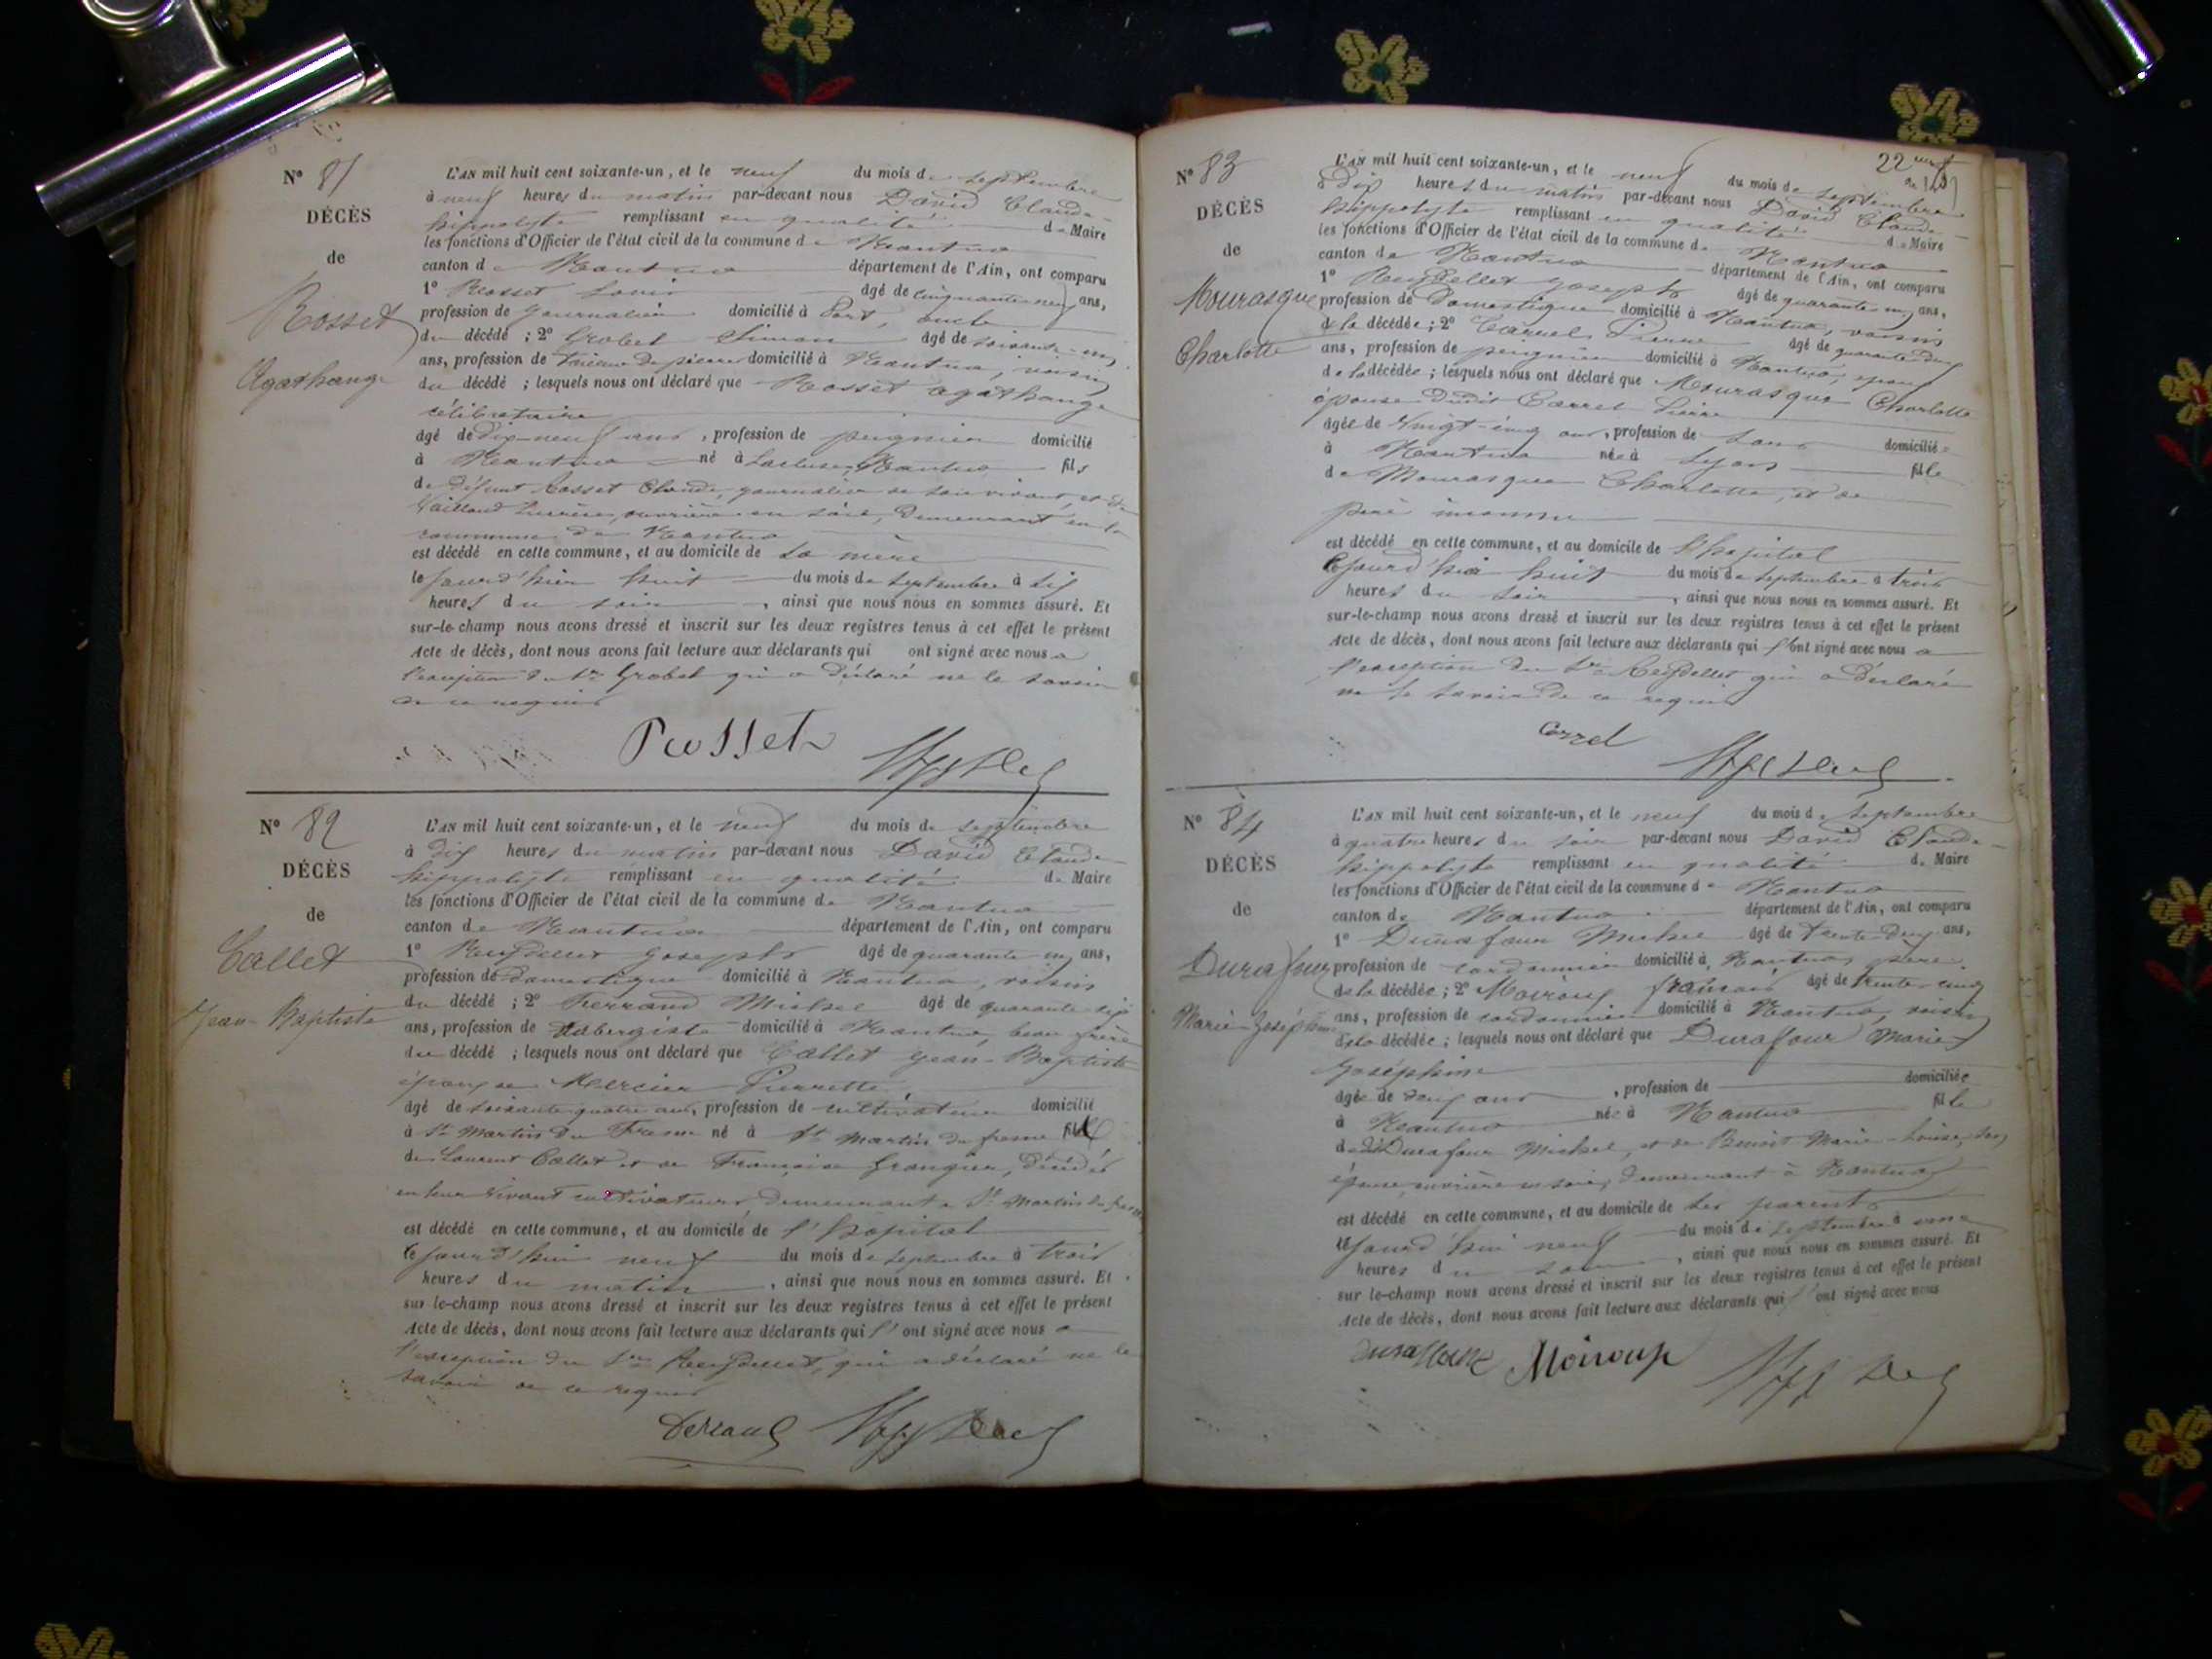 N° 81
DÉCÈS
de
Rosset
Agathange
L'AN mil huit cent soixante-un, et le neuf du mois de septembre
à neuf heures du matin par-devant nous David Claude-
hippolyte remplissant en qualité de Maire
les fonctions d'Officier de l'état civil de la commune de Nantua
canton de Nantua département de l'Ain, ont comparu
1° Rosset Louis âgé de cinquante-neuf ans,
profession de journalier domicilié à Port, oncle
du décédé ; 2° Grobet Simon âgé de soixante-un
ans, profession de tailleur de pierre domicilié à Nantua, voisin
du décédé ; lesquels nous ont déclaré que Rosset agathange
célibataire
âgé de dix-neuf ans, profession de peignier domicilié
à Nantua né à Lacluse, Nantua fils
de défunt Rosset Claude, journalier de son vivant, et de
ouvrière en soie, demeurant en la
commune de Nantua
est décédé en cette commune, et au domicile de sa mère
le jourd'hier huit du mois de septembre à six
heures du soir, ainsi que nous nous en sommes assuré. Et
sur-le-champ nous avons dressé et inscrit sur les deux registres tenus à cet effet le présent
Acte de décès, dont nous avons fait lecture aux déclarants qui ont signé avec nous a
l'exception du Sr Grobet qui a déclaré ne le savoir
de ce requis
Rosset
N° 82
DÉCÈS
de
Callet
Jean-Baptiste
L'AN mil huit cent soixante-un, et le neuf du mois de septembre
à dix heures du matin par-devant nous David Claude-
hippolyte remplissant en qualité de Maire
les fonctions d'Officier de l'état civil de la commune de Nantua
canton de Nantua département de l'Ain, ont comparu
1° Reydellet Joseph âgé de quarante-un ans,
profession de domestique domicilié à Nantua, voisin
du décédé ; 2° Ferrand Michel âgé de quarante six
ans, profession de Aubergiste domicilié à Nantua, beau frère
du décédé ; lesquels nous ont déclaré que Callet Jean-Baptiste
époux de Mercier Pierrette
âgé de soixante quatre ans, profession de cultivateur domicilié
à St Martin du Fresne né à St Martin du fresne fils
de Laurent Callet et de Françoise Grangier, décédés
en leur vivant cultivateurs, demeurant à St Martin du fresne
est décédé en cette commune, et au domicile de l'hôpital
le jourd'hui neuf du mois de septembre à trois
heures du matin, ainsi que nous nous en sommes assuré. Et
sur-le-champ nous avons dressé et inscrit sur les deux registres tenus à cet effet le présent
Acte de décès, dont nous avons fait lecture aux déclarants qui l'ont signé avec nous a
l'exception du Sr Reydellet, qui a déclaré ne le
savoir de ce requis
22
N° 83
DÉCÈS
de
Mourasque
Charlotte
L'AN mil huit cent soixante-un, et le neuf du mois de septembre
à dix heures du matin par-devant nous David Claude-
hippolyte remplissant en qualité de Maire
les fonctions d'Officier de l'état civil de la commune de Nantua
canton de Nantua département de l'Ain, ont comparu
1° Reydellet Joseph âgé de quarante-un ans,
profession de domestique domicilié à Nantua, voisin
de la décédée ; 2° Carrel Pierre âgé de quarante deux
ans, profession de peignier domicilié à Nantua, époux
de la décédée ; lesquels nous ont déclaré que Mourasque Charlotte
épouse dudit Carrel Pierre
âgée de vingt-cinq ans, profession de sans domiciliée
à Nantua née à Lyon fille
de Mourasque Charlotte, et de
père inconnu
est décédé en cette commune, et au domicile de l'hopital
le jourd'hier huit du mois de septembre à trois
heures du soir, ainsi que nous nous en sommes assuré. Et
sur-le-champ nous avons dressé et inscrit sur les deux registres tenus à cet effet le présent
Acte de décès, dont nous avons fait lecture aux déclarants qui l'ont signé avec nous a
l'exception du Sr Reydellet qui a déclaré
ne le savoir de ce requis
Correl
N° 84
DÉCÈS
de
Durafour
Marie-Joséphine
L'AN mil huit cent soixante-un, et le neuf du mois de septembre
à quatre heures du soir par-devant nous David Claude-
hippolyte remplissant en qualité de Maire
les fonctions d'Officier de l'état civil de la commune de Nantua
canton de Nantua département de l'Ain, ont comparu
1° Durafour Michel âgé de trente-deux ans,
profession de cordonnier domicilié à Nantua, père
de la décédée ; 2° Moiroux françois âgé de trente-cinq
ans, profession de cordonnier domicilié à Nantua, voisin
de la décédée ; lesquels nous ont déclaré que Durafour Marie
Joséphine
âgée de deux ans, profession de domiciliée
à Nantua née à Nantua fille
de Durafour Michel, et de Benoit Marie-Louise, son
épouse, ouvrière en soie, demeurant à Nantua
est décédé en cette commune, et au domicile de ses parents
le jourd'hui neuf du mois de septembre à une
heures du soir, ainsi que nous nous en sommes assuré. Et
sur-le-champ nous avons dressé et inscrit sur les deux registres tenus à cet effet le présent
Acte de décès, dont nous avons fait lecture aux déclarants qui l'ont signé avec nous
Moiroux